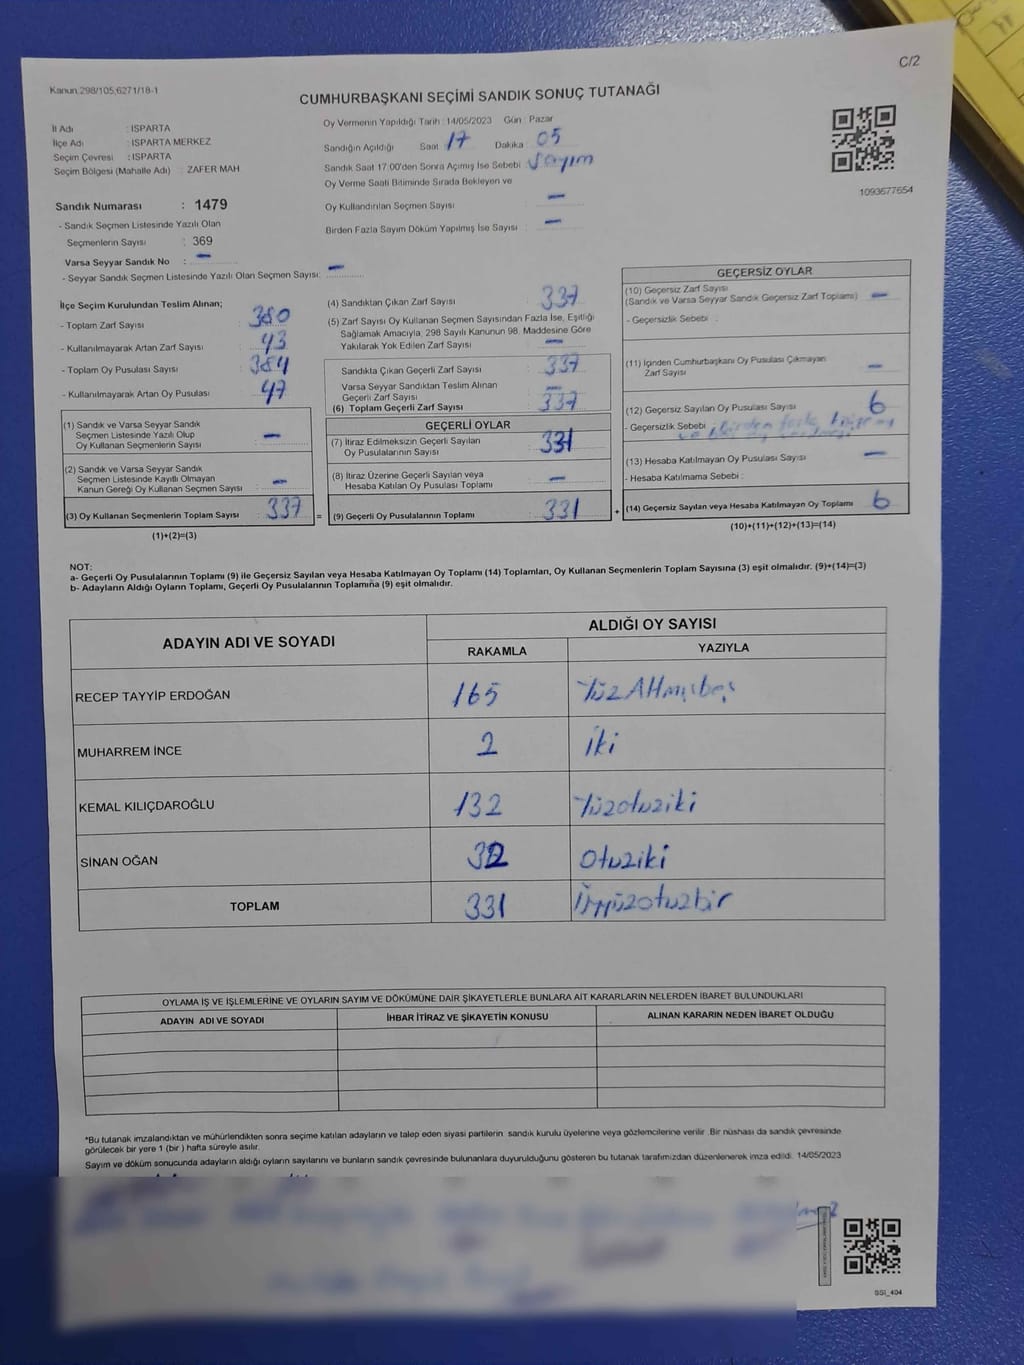 C/2
Kanun 298/105,6271/18-1
CUMHURBAŞKANI SEÇİMİ SANDIK SONUÇ TUTANAĞI
İl Adı : ISPARTA
İlçe Adı : ISPARTA MERKEZ
Seçim Çevresi : ISPARTA
Seçim Bölgesi (Mahalle Adı) : ZAFER MAH
Sandık Numarası : 1479
- Sandık Seçmen Listesinde Yazılı Olan
Seçmenlerin Sayısı : 369
Varsa Seyyar Sandık No : —
- Seyyar Sandık Seçmen Listesinde Yazılı Olan Seçmen Sayısı: —
Oy Vermenin Yapıldığı Tarih : 14/05/2023 Gün : Pazar
Sandığın Açıldığı Saat 17 Dakika 05
Sandık Saat 17:00'den Sonra Açılmış İse Sebebi : Sayım
Oy Verme Saati Bitiminde Sırada Bekleyen ve
Oy Kullandırılan Seçmen Sayısı : —
Birden Fazla Sayım Döküm Yapılmış İse Sayısı : —
1093677654
İlçe Seçim Kurulundan Teslim Alınan;
- Toplam Zarf Sayısı : 380
- Kullanılmayarak Artan Zarf Sayısı : 43
- Toplam Oy Pusulası Sayısı : 384
- Kullanılmayarak Artan Oy Pusulası : 47
(1) Sandık ve Varsa Seyyar Sandık
Seçmen Listesinde Yazılı Olup
Oy Kullanan Seçmenlerin Sayısı —
(2) Sandık ve Varsa Seyyar Sandık
Seçmen Listesinde Kayıtlı Olmayan
Kanun Gereği Oy Kullanan Seçmen Sayısı —
(3) Oy Kullanan Seçmenlerin Toplam Sayısı 337 =
(1)+(2)=(3)
(4) Sandıktan Çıkan Zarf Sayısı 337
(5) Zarf Sayısı Oy Kullanan Seçmen Sayısından Fazla İse, Eşitliği
Sağlamak Amacıyla, 298 Sayılı Kanunun 98. Maddesine Göre
Yakılarak Yok Edilen Zarf Sayısı —
Sandıkta Çıkan Geçerli Zarf Sayısı 337
Varsa Seyyar Sandıktan Teslim Alınan
Geçerli Zarf Sayısı —
(6) Toplam Geçerli Zarf Sayısı 337
GEÇERLİ OYLAR
(7) İtiraz Edilmeksizin Geçerli Sayılan
Oy Pusulalarının Sayısı 331
(8) İtiraz Üzerine Geçerli Sayılan veya
Hesaba Katılan Oy Pusulası Toplamı —
(9) Geçerli Oy Pusulalarının Toplamı 331 +
GEÇERSİZ OYLAR
(10) Geçersiz Zarf Sayısı
(Sandık ve Varsa Seyyar Sandık Geçersiz Zarf Toplamı) —
- Geçersizlik Sebebi :
(11) İçinden Cumhurbaşkanı Oy Pusulası Çıkmayan
Zarf Sayısı —
(12) Geçersiz Sayılan Oy Pusulası Sayısı 6
- Geçersizlik Sebebi
(13) Hesaba Katılmayan Oy Pusulası Sayısı —
- Hesaba Katılmama Sebebi :
(14) Geçersiz Sayılan veya Hesaba Katılmayan Oy Toplamı 6
(10)+(11)+(12)+(13)=(14)
NOT:
a- Geçerli Oy Pusulalarının Toplamı (9) ile Geçersiz Sayılan veya Hesaba Katılmayan Oy Toplamı (14) Toplamları, Oy Kullanan Seçmenlerin Toplam Sayısına (3) eşit olmalıdır. (9)+(14)=(3)
b- Adayların Aldığı Oyların Toplamı, Geçerli Oy Pusulalarının Toplamına (9) eşit olmalıdır.
ADAYIN ADI VE SOYADI ALDIĞI OY SAYISI
RAKAMLA YAZIYLA
RECEP TAYYİP ERDOĞAN 165 YüzAltmışbeş
MUHARREM İNCE 2 İki
KEMAL KILIÇDAROĞLU 132 Yüzotuziki
SİNAN OĞAN 32 Otuziki
TOPLAM 331 Üçyüzotuzbir
OYLAMA İŞ VE İŞLEMLERİNE VE OYLARIN SAYIM VE DÖKÜMÜNE DAİR ŞİKAYETLERLE BUNLARA AİT KARARLARIN NELERDEN İBARET BULUNDUKLARI
ADAYIN ADI VE SOYADI İHBAR İTİRAZ VE ŞİKAYETİN KONUSU ALINAN KARARIN NEDEN İBARET OLDUĞU
*Bu tutanak imzalandıktan ve mühürlendikten sonra seçime katılan adayların ve talep eden siyasi partilerin sandık kurulu üyelerine veya gözlemcilerine verilir. Bir nüshası da sandık çevresinde
görülecek bir yere 1 (bir) hafta süreyle asılır.
Sayım ve döküm sonucunda adayların aldığı oyların sayılarını ve bunların sandık çevresinde bulunanlara duyurulduğunu gösteren bu tutanak tarafımızdan düzenlenerek imza edildi. 14/05/2023
SSI_404